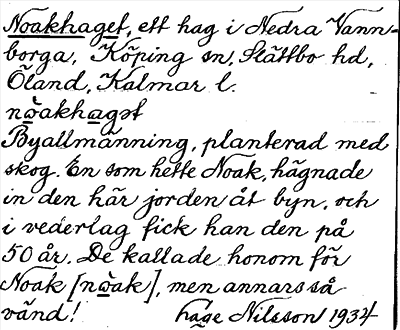 Noakhaget, ett hag i Nedra Vann-
borga, Köping sn, Slättbo hd,
Öland, Kalmar l.
nòakhagət
Byallmänning, planterad med
skog. En som hette Noak, hägnade
in den här jorden åt byn, och
i vederlag fick han den på
50 år. De kallade honom för
Noak [nòak], men annars så
vänd! Nilsson 1934